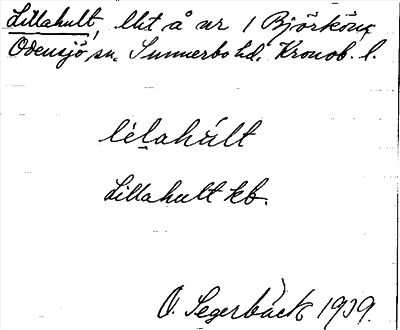 Lillahult, lht å nr 1 Björkön,
Odensjö sn. Sunnerbo hd. Kronob. l.
lilahúlt
Lillahult kb.
O. Segerbäck 1939.